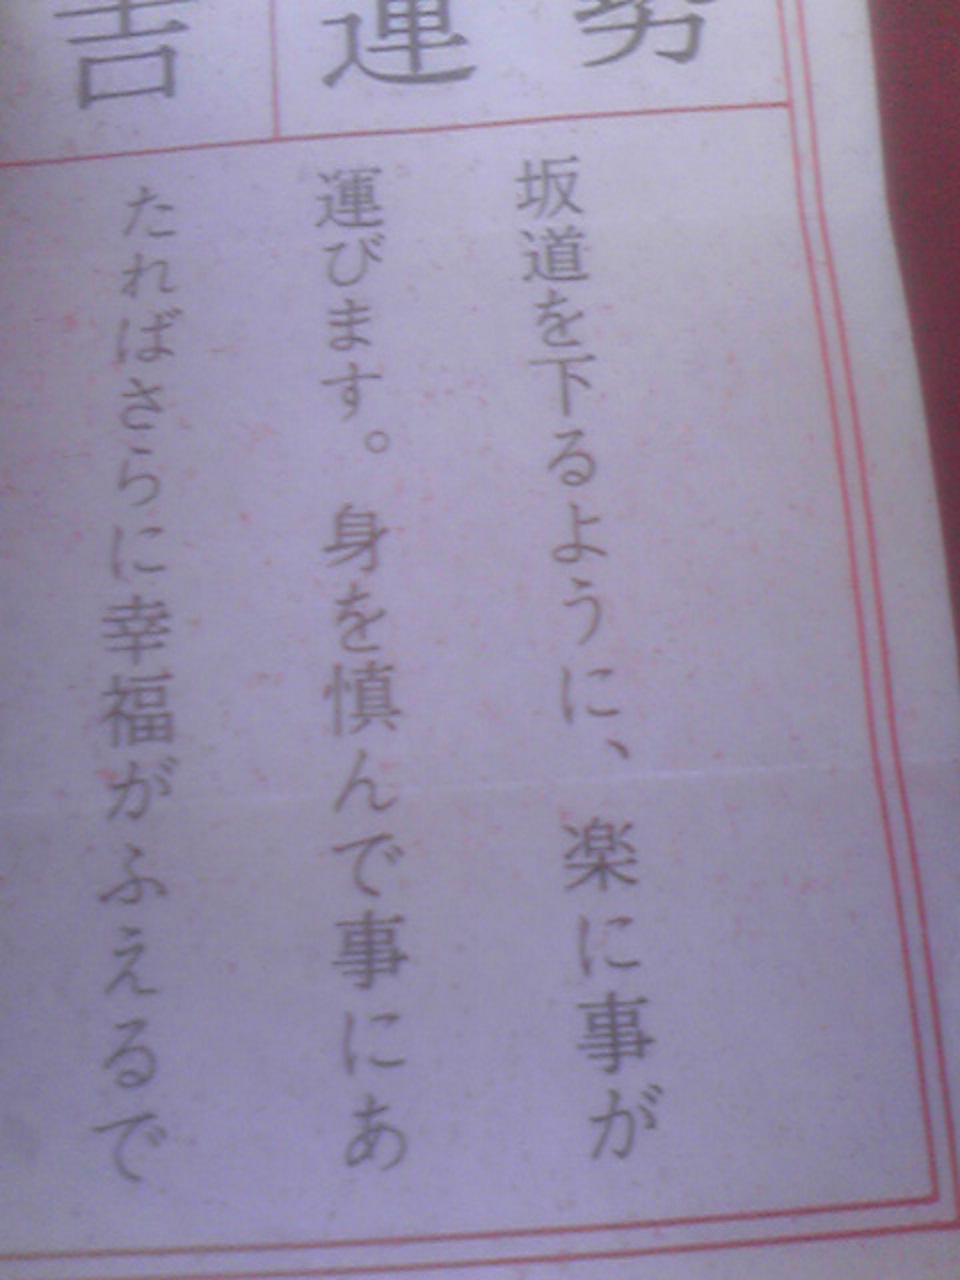 運勢
吉
坂道を下るように、楽に事が
運びます。身を慎んで事にあ
たればさらに幸福がふえるで